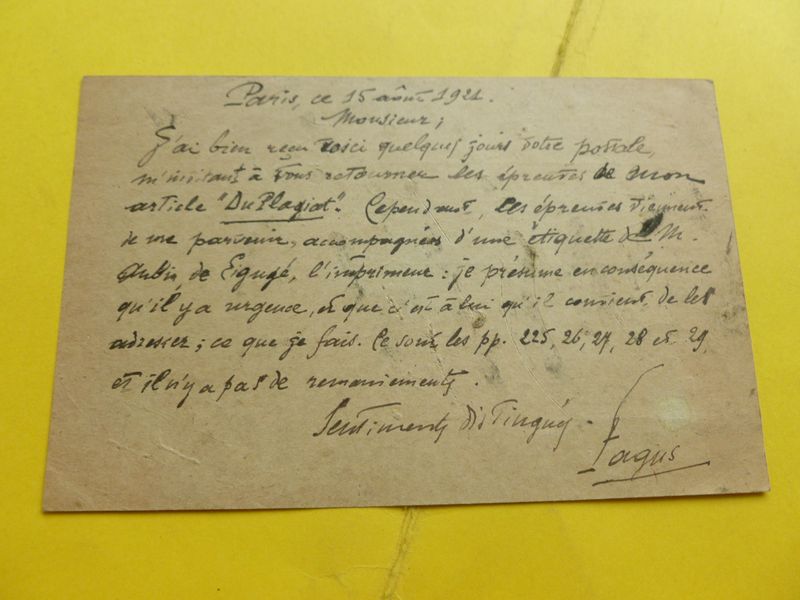 Paris, ce 15 août 1921.
Monsieur,
J'ai bien reçu voici quelques jours votre postale,
m'invitant à vous retourner les épreuves de mon
article "Du Plagiat". Cependant, les épreuves viennent
de me parvenir, accompagnées d'une étiquette de M.
Aubin, de Ligugé, l'imprimeur : je présume en conséquence
qu'il y a urgence, et que c'est à lui qu'il convient de les
adresser ; ce que je fais. Ce sont les pp. 225, 26, 27, 28 et 29,
et il n'y a pas de remaniements.
Sentiments distingués.
Fagus